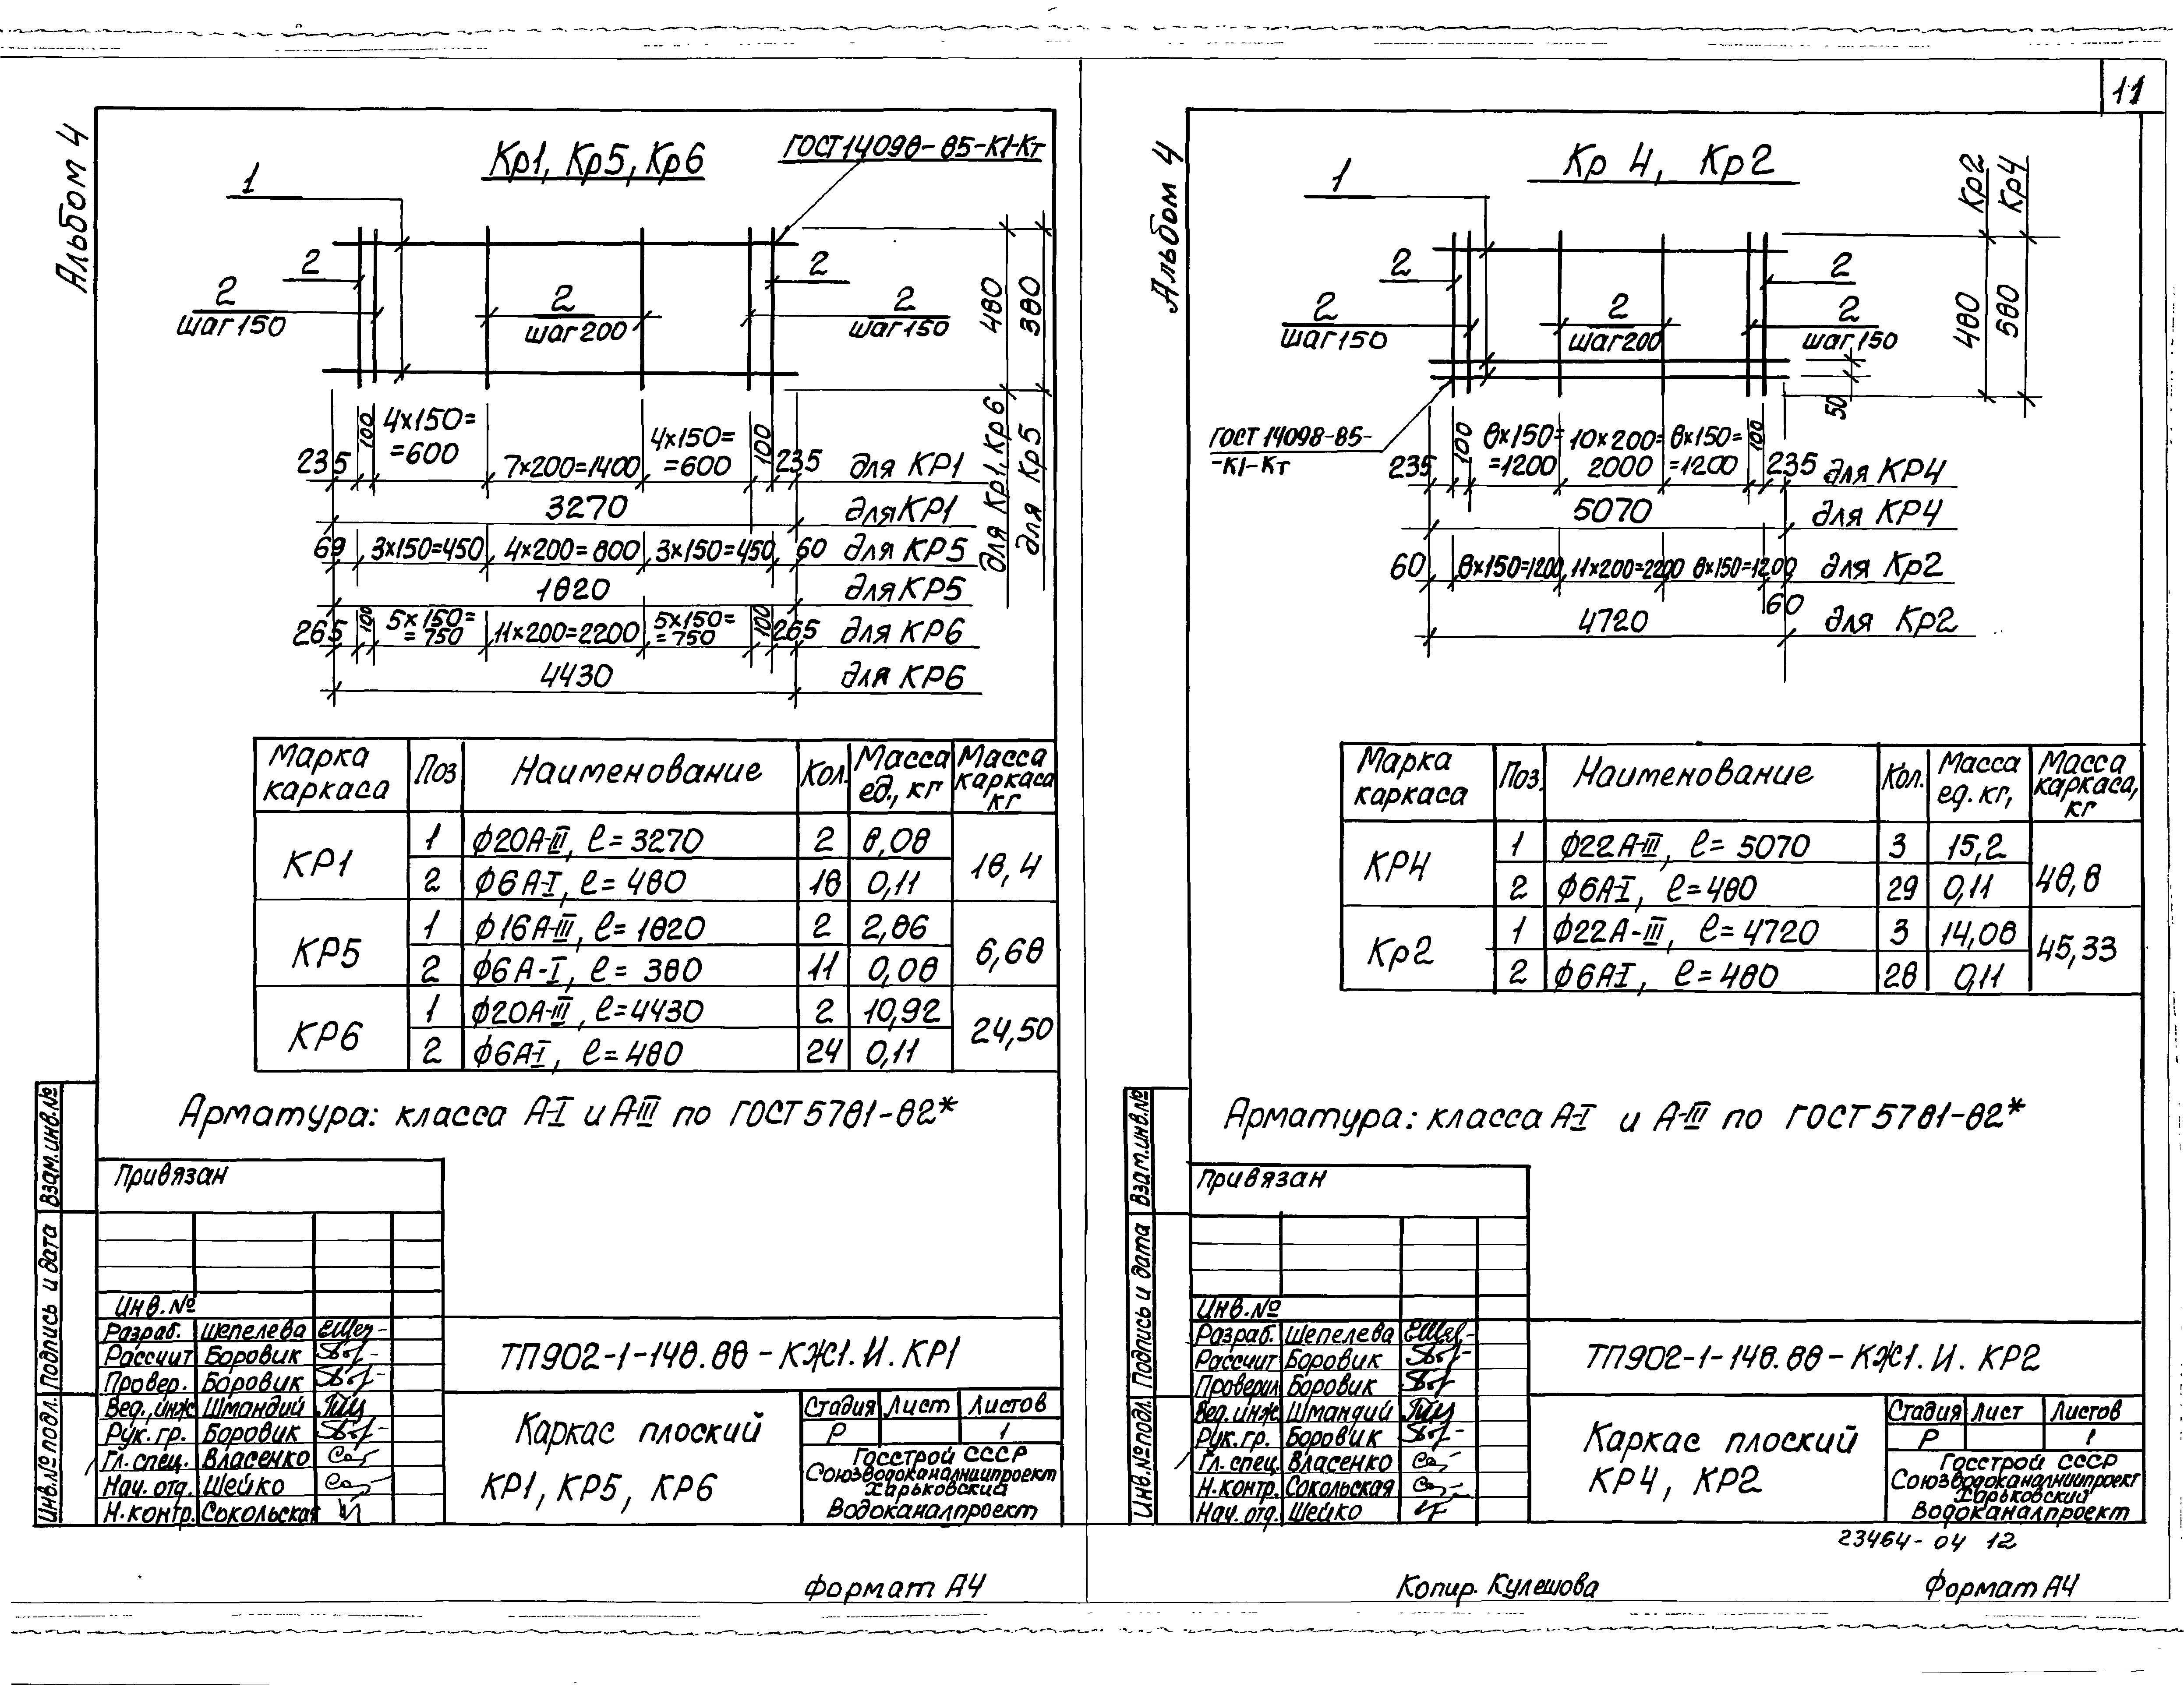 11
Альбом 4
Кр1, Кр5, Кр6
ГОСТ14098-85-К1-Кт
1
2
2
2
шаг150
2
шаг200
2
шаг150
480
380
для Кр1, Кр6
для Кр5
235 100 4х150= =600 7х200=1400 4х150= =600 100 235 для КР1
3270 для КР1
69 3х150=450 4х200=800 3х150=450 60 для КР5
1820 для КР5
265 100 5х150= =750 11х200=2200 5х150= =750 100 265 для КР6
4430 для КР6
Марка каркаса Поз Наименование Кол. Масса ед., кг Масса каркаса кг
КР1 1 ф20А-III, ℓ=3270 2 8,08 18,4
2 ф6А-I, ℓ=480 18 0,11
КР5 1 ф16А-III, ℓ=1820 2 2,86 6,68
2 ф6А-I, ℓ=380 11 0,08
КР6 1 ф20А-III, ℓ=4430 2 10,92 24,50
2 ф6А-I, ℓ=480 24 0,11
Арматура: класса А-I и А-III по ГОСТ5781-82*
Привязан
Инв.№
Разраб. Шепелева
Рассчит Боровик
Провер. Боровик
Вед.,инж Шмандий
Рук.гр. Боровик
Гл.спец. Власенко
Нач. отд. Шейко
Н.контр. Сокольская
Взам.инв.№
Подпись и дата
Инв.№подл.
ТП902-1-148.88-КЖ1.И.КР1
Каркас плоский
КР1, КР5, КР6
Стадия Лист Листов
Р 1
Госстрой СССР
Союзводоканалниипроект
Харьковский
Водоканалпроект
Формат А4
Альбом 4
Кр 4, Кр2
1
2
2
2
шаг150
2
шаг200
2
шаг150
50
Кр2
Кр4
480
580
ГОСТ 14098-85-
-К1-Кт
235 100 8х150= =1200 10х200= 2000 8х150= =1200 100 235 для КР4
5070 для КР4
60 8х150=1200 11х200=2200 8х150=1200 60 для Кр2
4720 для Кр2
Марка каркаса Поз. Наименование Кол. Масса ед. кг, Масса каркаса, кг
КР4 1 ф22А-III, ℓ=5070 3 15,2 48,8
2 ф6А-I, ℓ=480 29 0,11
Кр2 1 ф22А-III, ℓ=4720 3 14,08 45,33
2 ф6АI, ℓ=480 28 0,11
Арматура: класса А-I и А-III по ГОСТ5781-82*
Привязан
Инв.№
Разраб. Шепелева
Рассчит Боровик
Проверил Боровик
Вед.инж Шмандий
Рук.гр. Боровик
Гл.спец. Власенко
Н.контр. Сокольская
Нач. отд. Шейко
Взам.инв.№
Подпись и дата
Инв.№подл.
ТП902-1-148.88-КЖ1.И.КР2
Каркас плоский
КР4, КР2
Стадия Лист Листов
Р 1
Госстрой СССР
Союзводоканалниипроект
Харьковский
Водоканалпроект
23464-04 12
Копир. Кулешова
Формат А4